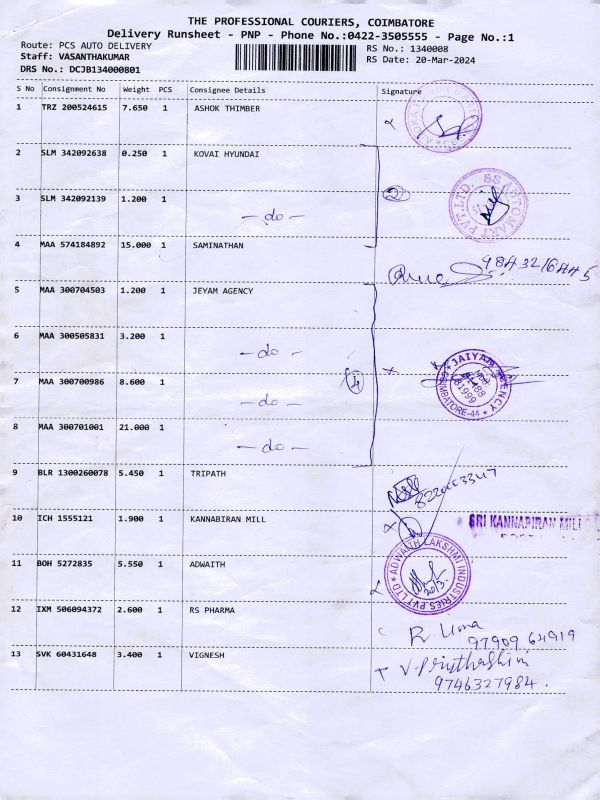 THE PROFESSIONAL COURIERS, COIMBATORE
Delivery Runsheet - PNP - Phone No.:0422-3505555 - Page No.:1
Route: PCS AUTO DELIVERY
RS No.: 1340008
Staff: VASANTHAKUMAR
RS Date: 20-Mar-2024
DRS No.: DCJB134000801
S No Consignment No Weight PCS Consignee Details Signature
1 TRZ 200524615 7.650 1 ASHOK THIMBER
2 SLM 342092638 0.250 1 KOVAI HYUNDAI
3 SLM 342092139 1.200 1 - do - 2 SS AUTOMART PVT LTD
4 MAA 574184892 15.000 1 SAMINATHAN
5 MAA 300704503 1.200 1 JEYAM AGENCY
6 MAA 300505831 3.200 1 - do -
7 MAA 300700986 8.600 1 - do - 4 JAIYAM AGENCY COIMBATORE-44
8 MAA 300701001 21.000 1 - do -
9 BLR 1300260078 5.450 1 TRIPATH
10 ICH 1555121 1.900 1 KANNABIRAN MILL SRI KANNAPIRAN MILL
11 BOH 5272835 5.550 1 ADWAITH ADWAITH LAKSHMI INDUSTRIES PVT LTD
12 IXM 506094372 2.600 1 RS PHARMA R Uma
97909 64919
13 SVK 60431648 3.400 1 VIGNESH
9746327984.